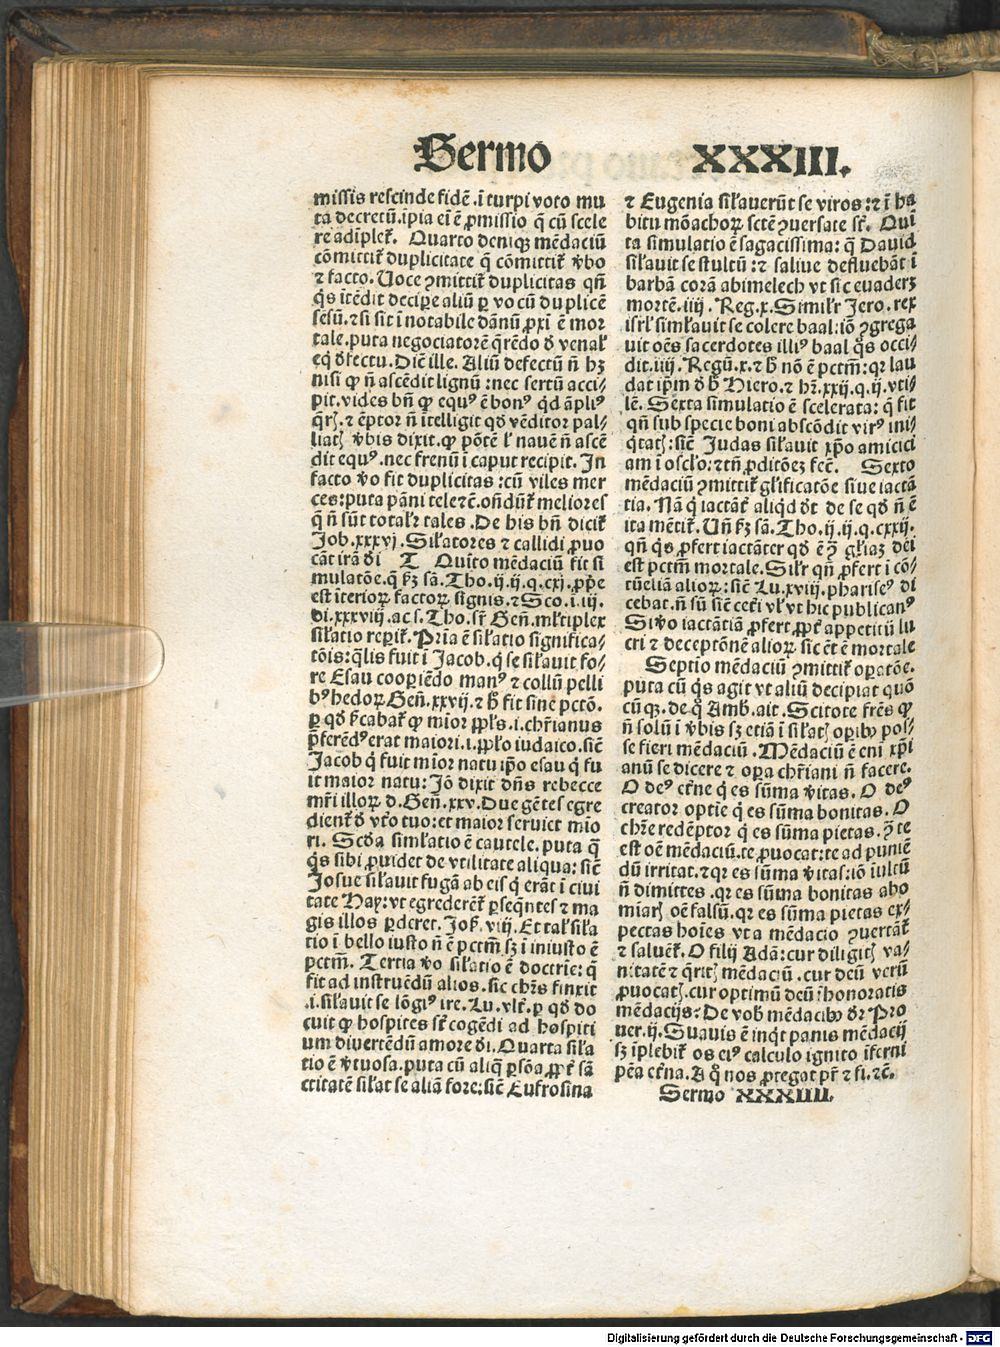 Sermo XXXIII.
missis rescinde fidē. ī turpi voto mu
ta decretū. īpia ei ē ꝓmissio q̄ cū scele
re adīplet᷑. Quarto deniqꝫ mēdaciū
cōmittit᷑ duplicitate q̄ cōmittit᷑ v̄bo
⁊ facto. Uoce ꝯmittit᷑ duplicitas qn̄
q̄s ītēdit decipe aliū ꝑ vocū duplicē
sēsū. ⁊ si sit ī notabile dānū ꝓxī ē mor
tale. puta negociatorē q̄rēdo d̄ venal̓
eq̄ d̓fectu. Diē ille. Aliū defectū n̄ hꝫ
nisi ꝙ n̄ ascēdit lignū: nec sertū acci⸗
pit. vides bn̄ ꝙ equꝰ ē bonꝰ q̄d āpliꝰ
q̄rꝭ. ⁊ ēptor n̄ ītelligit qd̓ vēditor pal⸗
liatꝭ v̄bis dixit. ꝙ pōtē l̓ nauē n̄ ascē
dit equꝰ. nec frenū ī caput recipit. In
facto v̓o fit duplicitas: cū viles mer
ces: puta pāni tele ⁊c̄. on̄dūt᷑ meliores
q̄ n̄ sūt totalr̓ tales. De his bn̄ dicit᷑
Job. xxxvj. Sil̓atores ⁊ callidi ꝓuo
cāt irā d̓i T Quīto mēdaciū fit si
mulatōe. q̄ ẜꝫ sā. Tho. ij. ij. q. cxj. ꝓp̓e
est īterioꝝ factoꝝ signis. ⁊ Sco. i. iij.
di. xxxviij. ac s. Tho. sr̄ Gen̄. ml̓tiplex
sil̓atio reꝑit᷑. Pria ē sil̓atio significa⸗
tōis: q̄lis fuit ī Jacob. q̄ se sil̓auit fo⸗
re Esau cooꝑiēdo manꝰ ⁊ collū pelli
bꝰ hedoꝝ. Gen̄. xxvij. ⁊ h̓ fit sine pctō.
ꝑ qd̓ p̄cabat᷑ ꝙ mīor ppl̓s. i. chr̄ianus
p̄ferēdꝰ erat maiori. i. ppl̓o iudaico. sic̄
Jacob q̄ fuit mīor natu ip̄o esau q̄ fu
it maior natu: Jō dixit dn̄s rebecce
mr̄i illoꝝ d. Gen̄. xxv. Due gētes egre
dient᷑ d̓ vt̓o tuo: et maior seruiet mīo
ri. Scd̓a siml̓atio ē cautele. puta q̄
q̄s sibi ꝓuidet de vtilitate aliqua: sic̄
Josue sil̓auit fugā ab eis q̄ erāt ī ciui
tate Hay: vt egrederēt᷑ ꝑseq̄ntes ⁊ ma
gis illos ꝑderet. Jos̓. viij. Et tal̓ sil̓a
tio ī bello iusto n̄ ē pctm̄ sꝫ ī iniusto ē
pctm̄. Tertia v̓o sil̓atio ē doctrīe: q̄
fit ad instruēdū alios. sic chr̄s finxit
.i. sil̓auit se lōgiꝰ ire. Lu. vlt̓. ꝑ qd̓ do
cuit ꝙ hospites st̓ cogēdi ad hospiti
um diuertēdū amore d̓i. Quarta sil̓a
tio ē v̓tuosa. puta cū aliq̄ ꝑsōa ꝓpt̓ sā
ctitatē sil̓at se aliā fore: sic̄ Eufrosina
⁊ Eugenia sil̓auerūt se viros: ⁊ ī ha
bitu mōachoꝝ sctē ꝯuersate st̓. Quī
ta simulatio ē sagacissima: q̄ Dauid
sil̓auit se stultū: ⁊ saliue defluebāt ī
barbā corā abimelech vt sic euaderꝫ
mortē. iiij. Reg. x. Similr̓ Jero. rex
isrl̓ siml̓auit se colere baal: iō ꝯgrega
uit oēs sacerdotes illiꝰ baal q̄s occi⸗
dit. iiij. Regū. x. ⁊ h̓ nō ē pctm̄: qꝛ lau
dat ip̄m d̓ h̓ Hiero. ⁊ hr̄. xxij. q. ij. vti⸗
lē. Sexta simulatio ē scelerata: q̄ fit
qn̄ sub specie boni abscōdit virꝰ ini⸗
q̄tatꝭ: sic̄ Judas sil̓auit xp̄o amicici
am ī oscl̓o: ⁊ tn̄ ꝓditōeꝫ fec̄. Sexto
mēdaciū ꝯmittit᷑ gl̓ificatōe siue iactā
tia. Nā q̄ iactāt᷑ aliqd̓ d̓t de se qd̓ n̄ ē
ita mētit᷑. Un̄ ẜꝫ sā. Tho. ij. ij. q. cxxij.
qn̄ q̄s ꝓfert iactāter qd̓ ē ꝯ̄ gl̓iaꝫ dei
est pctm̄ mortale. Silr̓ qn̄ ꝓfert ī cō⸗
tūeliā alioꝝ: sic̄ Lu. xviij. phariseꝰ di
cebat. n̄ sū sic̄ cet̓i vl̓ vt hic publicanꝰ
Si v̓o iactātiā ꝓfert ꝓpt̓ appetitū lu
cri ⁊ deceptōnē alioꝝ. sic ēt ē mortale
Septīo mēdaciū ꝯmittit᷑ oꝑatōe.
puta cū q̄s agit vt aliū decipiat quō
cūqꝫ. de q̄ Amb̓. ait. Scitote fr̄es ꝙ
n̄ solū ī v̓bis sꝫ etiā ī sil̓atꝭ oꝑibꝰ pos⸗
se fieri mēdaciū. Mēdaciū ē eni xp̄i
anū se dicere ⁊ oꝑa chr̄iani n̄ facere.
O deꝰ et̓ne q̄ es sūma v̓itas. O deꝰ
creator optīe q̄ es sūma bonitas. O
chr̄e redēptor q̄ es sūma pietas. ꝯ̄ te
est oē mēdaciū. te ꝓuocat: te ad puniē
dū irritat. ⁊ qꝛ es sūma v̓itas: iō īultū
n̄ dimittes. qꝛ es sūma bonitas abo
mīarꝭ oē falsū. qꝛ es sūma pietas ex⸗
pectas hoīes vt a mēdacio ꝯuertāt᷑
⁊ saluēt᷑. O filij Adā: cur diligitꝭ va⸗
nitatē ⁊ q̄ritꝭ mēdaciū. cur deū verū
ꝓuocatꝭ. cur optimū deū īhonoratis
mēdacijs: De vob̓ mēdacibꝰ d̓r Pro
uer. ij. Suauis ē inq̄t panis mēdacij
sꝫ īplebit᷑ os eiꝰ calculo ignito īferni
pēa et̓na. A q̄ nos ꝓtegat pr̄ ⁊ fi. ⁊c̄.
Sermo XXXIIII.
Digitalisierung gefördert durch die Deutsche Forschungsgemeinschaft - DFG